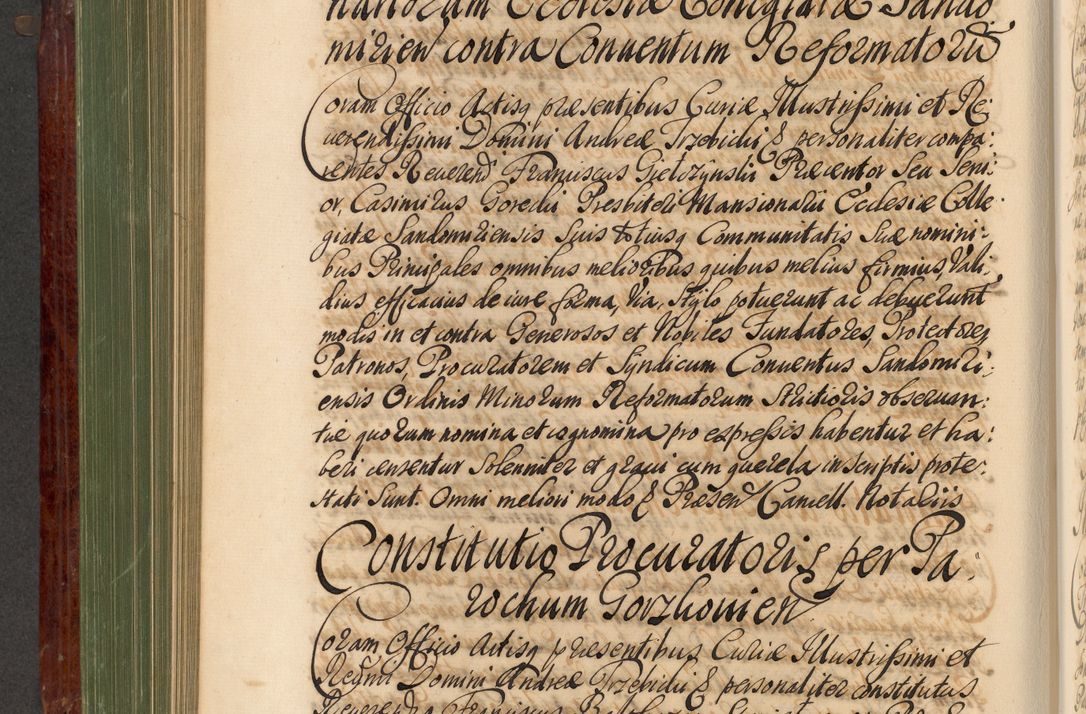 nariorum Ecclesiæ Collegiatæ Sando
mirien contra Conuentum Reformatorū
Coram Officio Actisq præsentibus Curiæ Illustrissimi et Re:
uerendissimi Domini Andreæ Trzebicki & personaliter compa:
rentes Reuerend Franciscus Giełczynski Præcentor Sea Seni:
or, Casimirus Gorecki Presbiteri Mansionarii Ecclesiæ Colle:
giatæ Sandomiriensis Suis totiusq Communitatis Suæ nomini:
bus Principales omnibus melioribus quibus melius firmius, Vali,
dius efficacius de iure forma, Via, Stylo potuerunt ac debuerunt
modis in et contra Generosos et Nobiles Fundatores, Protectores
Patronos, Procuratorem et Syndicum Conuentus Sandomiri:
ensis Ordinis Minorum Reformatorum Strictioris obseruan:
tiæ quorum nomina et cognomina pro expressis habentur et ha:
beri censentur Solenniter et graui cum querela in scriptis prote:
stati Sunt. Omni meliori modo & Præsen Cancell. Notariis
Constitutio Procuratoris per Pa:
rochum Gorzkouien
Coram Officio Actisq præsentibus Curiæ Illustrissimi et
Reꝟmi Domini Andreæ Trzebicki & personaliter constitutus
Franciscus